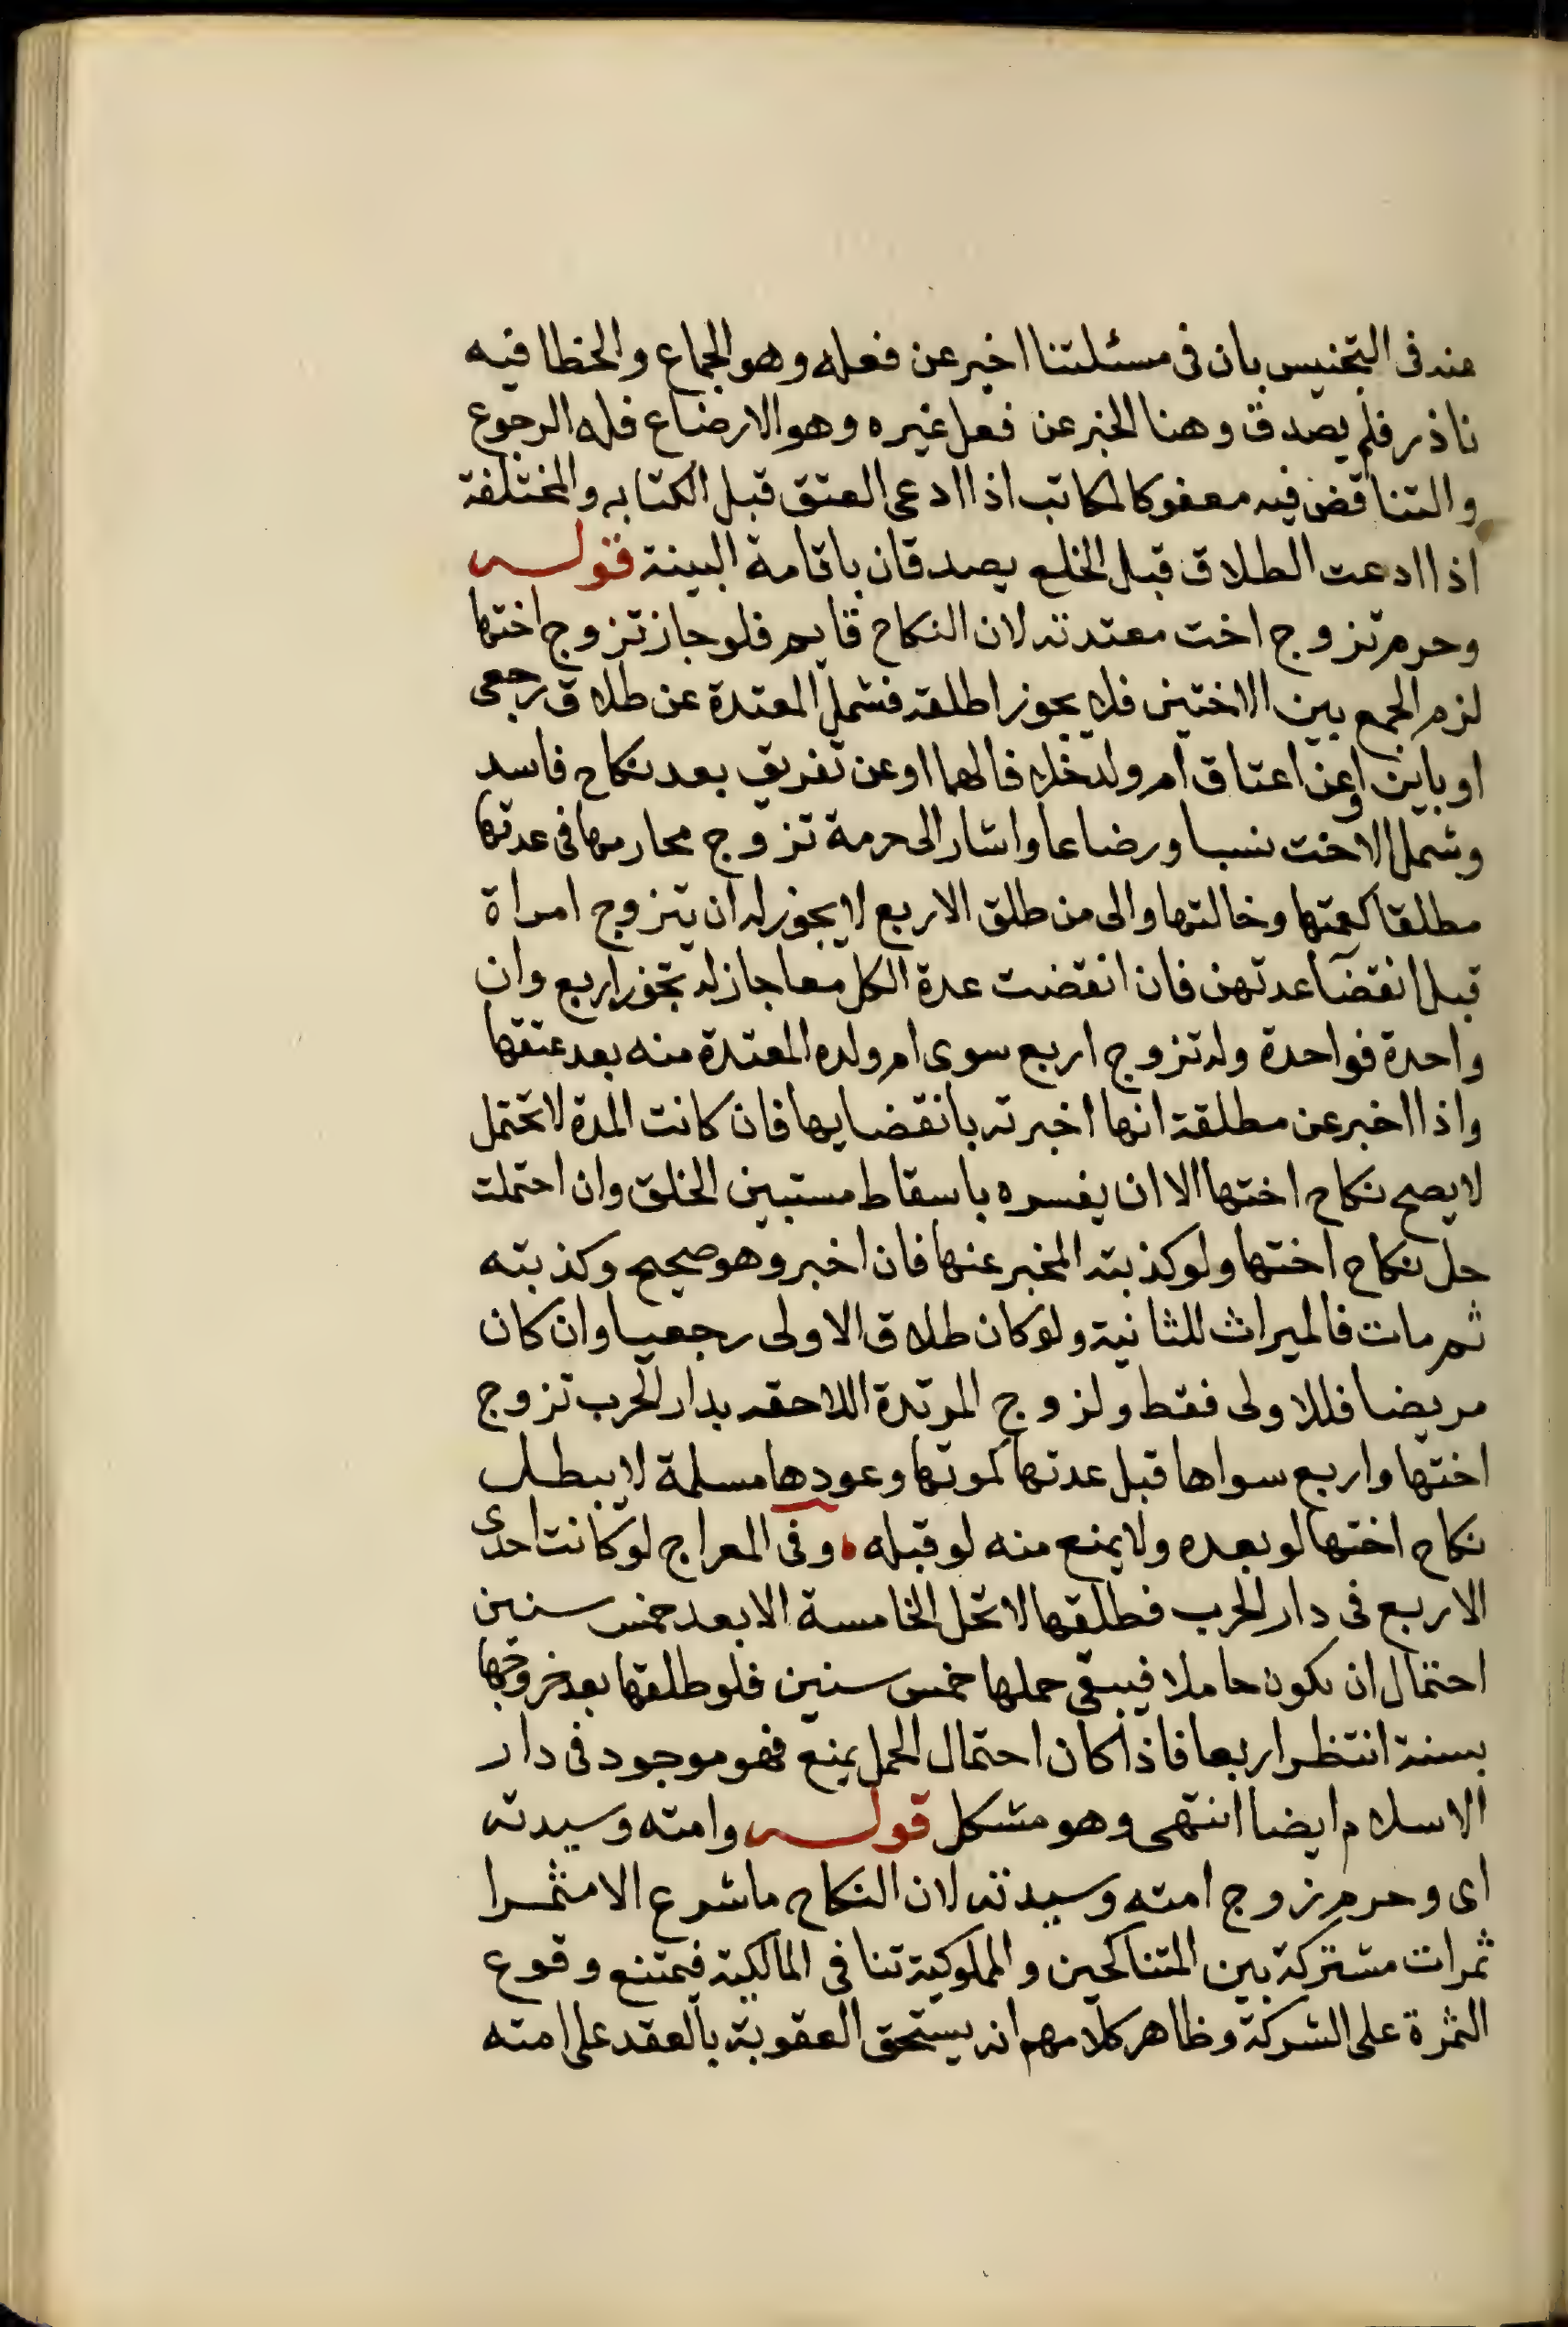 عنه فى التجنيس بان فى مسئلتنا اخبر عن فعله وهو الجماع والخطا فيه
ناذر فلم يصدق وهنا الخبر عن فعل غيره وهو الارضاع فله الرجوع
والتناقض فيه معفو كالمكاتب اذا ادعى العتق قبل الكتابه والمختلفة
اذا ادعت الطلاق قبل الخلع يصدقان باقامة البينة قوله
وحرم تزوج اخت معتدته لان النكاح قايم فلو جاز تزوج اختها
لزم الجمع بين الاختين فلا يجوز اطلقه فشمل المعتدة عن طلاق رجعى
او باين او عن اعتاق ام ولد خلافا لهما او عن تفريق بعد نكاح فاسد
وشمل الاخت نسبا ورضاعا واشار الى حرمة تزوج محارمها فى عدتها
مطلقا كعمتها وخالتها والى من طلق الاربع لا يجوز له ان يتزوج امراة
قبل انقضآ عدتهن فان انقضت عدة الكل معا جاز له تجوز اربع وان
واحدة فواحدة وله تزوج اربع سوى ام ولده المعتدة منه بعد عتقها
واذا اخبر عن مطلقة انها اخبرته بانقضايها فان كانت المدة لا تحتمل
لا يصح نكاح اختها الا ان يفسره باسقاط مستبين الخلق وان احتملت
حل نكاح اختها ولو كذبته المخبر عنها فان اخبر وهو صحيح وكذبته
ثم مات فالميراث للثانية ولو كان طلاق الاولى رجعيا وان كان
مريضا فللاولى فقط ولزوج المرتدة اللاحقه بدار الحرب تزوج
اختها واربع سواها قبل عدتها كموتها وعودها مسلمة لا يبطل
نكاح اختها لو بعده ولا يمنع منه لو قبله وفى المعراج لو كانت احدى
الاربع فى دار الحرب فطلقها لا تحل الخامسة الا بعد خمس سنين
احتمال ان يكون حاملا فيبقى حملها خمس سنين فلو طلقها بعد خروجها
بسنة انتظر اربعا فاذا كان احتمال الحمل يمنع فهو موجود فى دار
الاسلام ايضا انتهى وهو مشكل قوله وامته وسيدته
اى وحرم تزوج امته وسيدته لان النكاح ما شرع الا مثمرا
ثمرات مشتركة بين المتناكحين والمملوكية تنافى المالكية فيمتنع وقوع
الثمرة على الشركة وظاهر كلامهم انه يستحق العقوبة بالعقد على امته